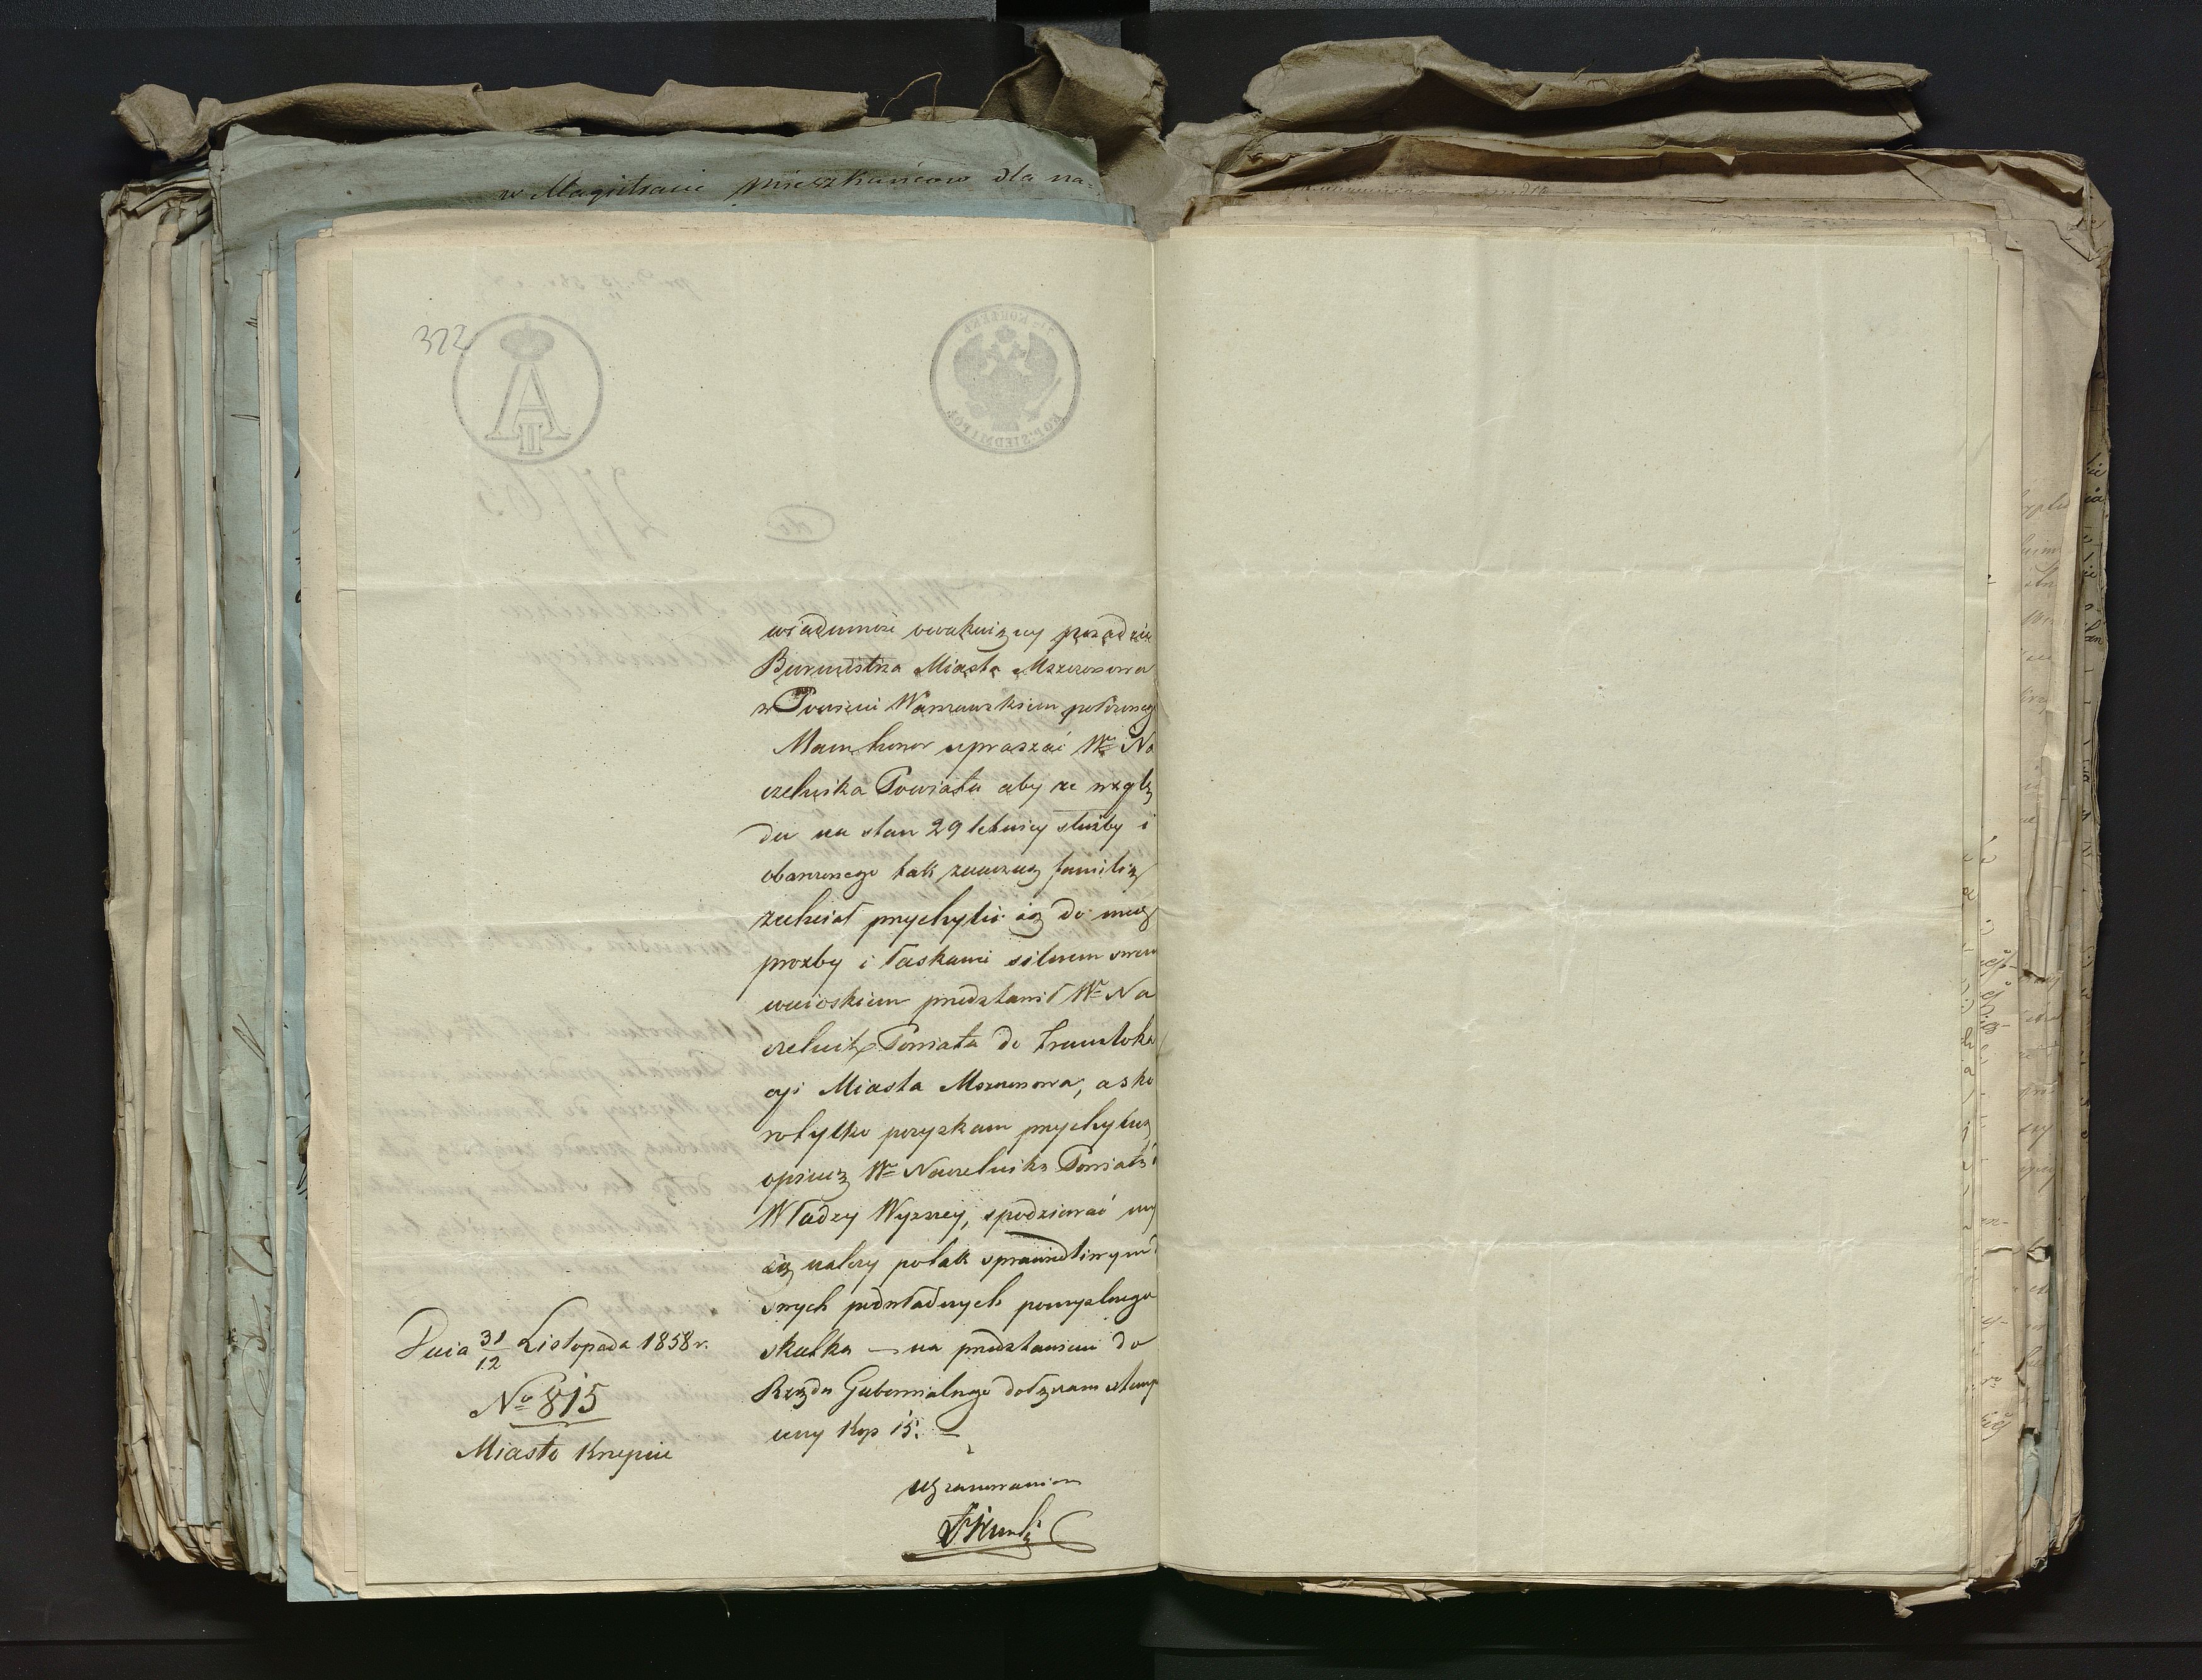 w Magistracie mieszkańców dla na=
322
A
II
wiadomość o wakującej posadzie
Burmistrza Miasta Mszczonowa
w Powiecie Warszawskim położonego
Mam honor upraszać Wgo Na
czelnika Powiatu aby ze wzglę
du na stan 29 letniej służby i
obarczonego tak znaczną familią
zechciał przychylić się do mej
prozby i łaskawie silnem swem
wnioskiem przedstawił Wy Na
czelnik Powiatu do transloka
cyi Miasta Mszczonowa, a sko
ro tylko pozyskam przychylną
opinię Wgo Naczelnika Powiatu i
Władzy Wyższey, spodziewać mi
się należy po tak sprawiedliwym
swych podwładnych pomyslnego
skutku — na przedstawienie do
Rządu Gubernialnego dołączam stemp
lowy Kop 15. —
Uszanowaniem
Dnia 31/12 Listopada 1858 r.
No 815
Miasto Krzepice